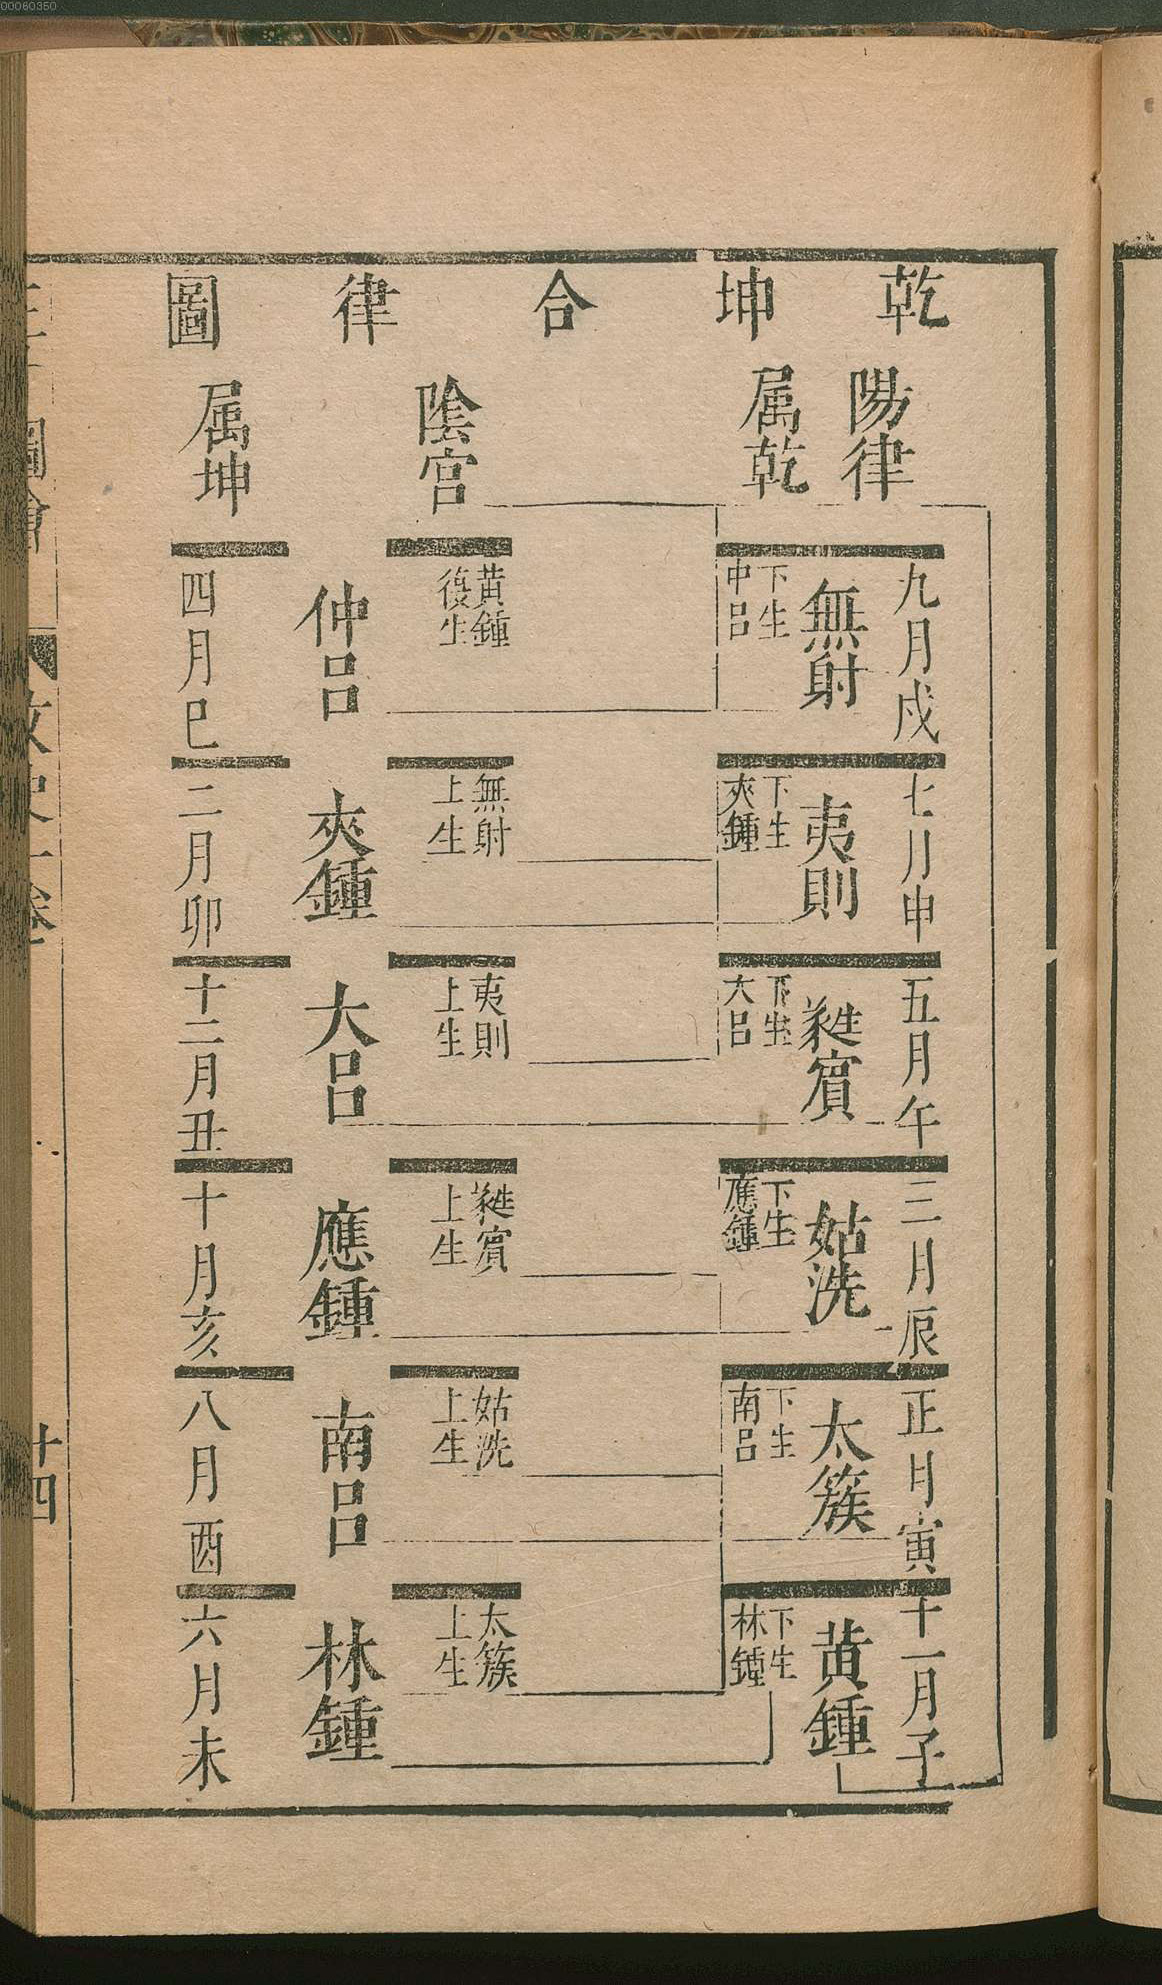 00060350
乾坤合律圖
陽律
属乾
陰宮
属坤
九月戌
無射
下生
中呂
黃鍾
復生
仲呂
四月巳
七月申
夷則
下生
夾鍾
無射
上生
夾鍾
二月卯
五月午
蕤賓
下生
大呂
夷則
上生
大呂
十二月丑
三月辰
姑洗
下生
應鍾
蕤賓
上生
應鍾
十月亥
正月寅
太簇
下生
南呂
姑洗
上生
南呂
八月酉
十一月子
黃鍾
下生
林鍾
太簇
上生
林鍾
六月未
圖會
十四